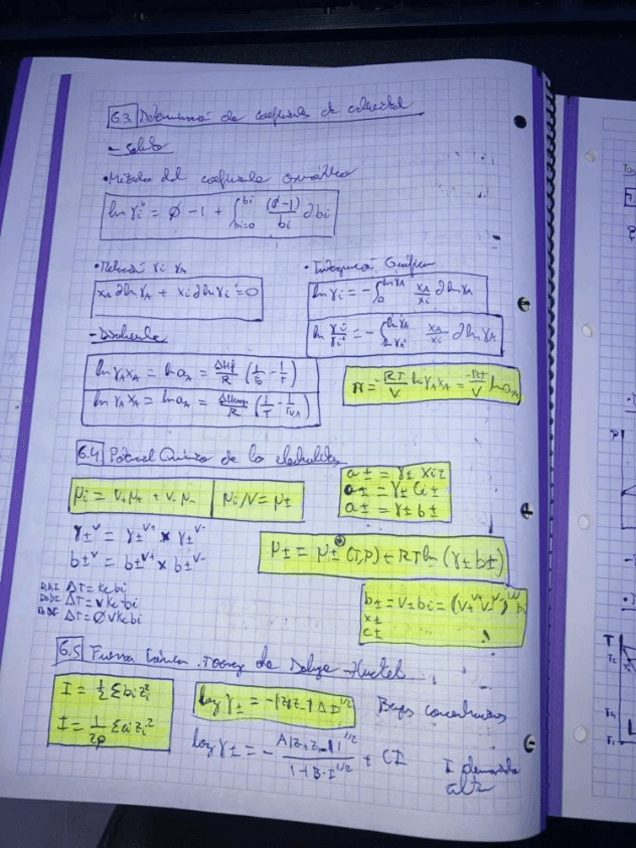 6.3 Determinació de coeficients de activitat
- Solut
• Método del coeficiente osmótico
ln γi = ϕ - 1 + ∫bi=0^bi (ϕ-1)/bi ∂bi
• Relació γi γA
xA ∂lnγA + xi ∂lnγi = 0
• Integració Gráfica
ln γi = - ∫0^lnγA xA/xi ∂lnγA
ln γi/γi' = - ∫lnγA'^lnγA xA/xi ∂lnγA
- Disolvente
ln γA xA = ln aA = ΔHf/R (1/T0 - 1/T)
ln γA xA = ln aA = ΔHvap/R (1/T - 1/TVA)
π = -RT/V ln γA xA = -RT/V ln aA
6.4 Potencial Químic de los electrolitos
μi = V+μ+ + V-μ-
μi/V = μ±
a± = γ± xi±
a± = γ± ci±
a± = γ± b±
γ±^V = γ±^V+ × γ±^V-
b±^V = b±^V+ × b±^V-
μ± = μ±° (T,P) + RTln (γ± b±)
ΔT = Ke bi
ΔT = V Ke bi
ΔT = ϕ V Ke bi
b± = V± bi = (V+^V+ V-^V-)^1/V bi
x±
c±
6.5 Fuerza Iónica. Teoría de Debye-Huckel
I = 1/2 Σ bi zi²
I = 1/2ρ Σ ci zi²
log γ± = -|z+z-| A I^1/2
Bajas concentraciones
log γ± = - A|z+z-|I^1/2 / 1+B·I^1/2 + CI
I demasiado
alta